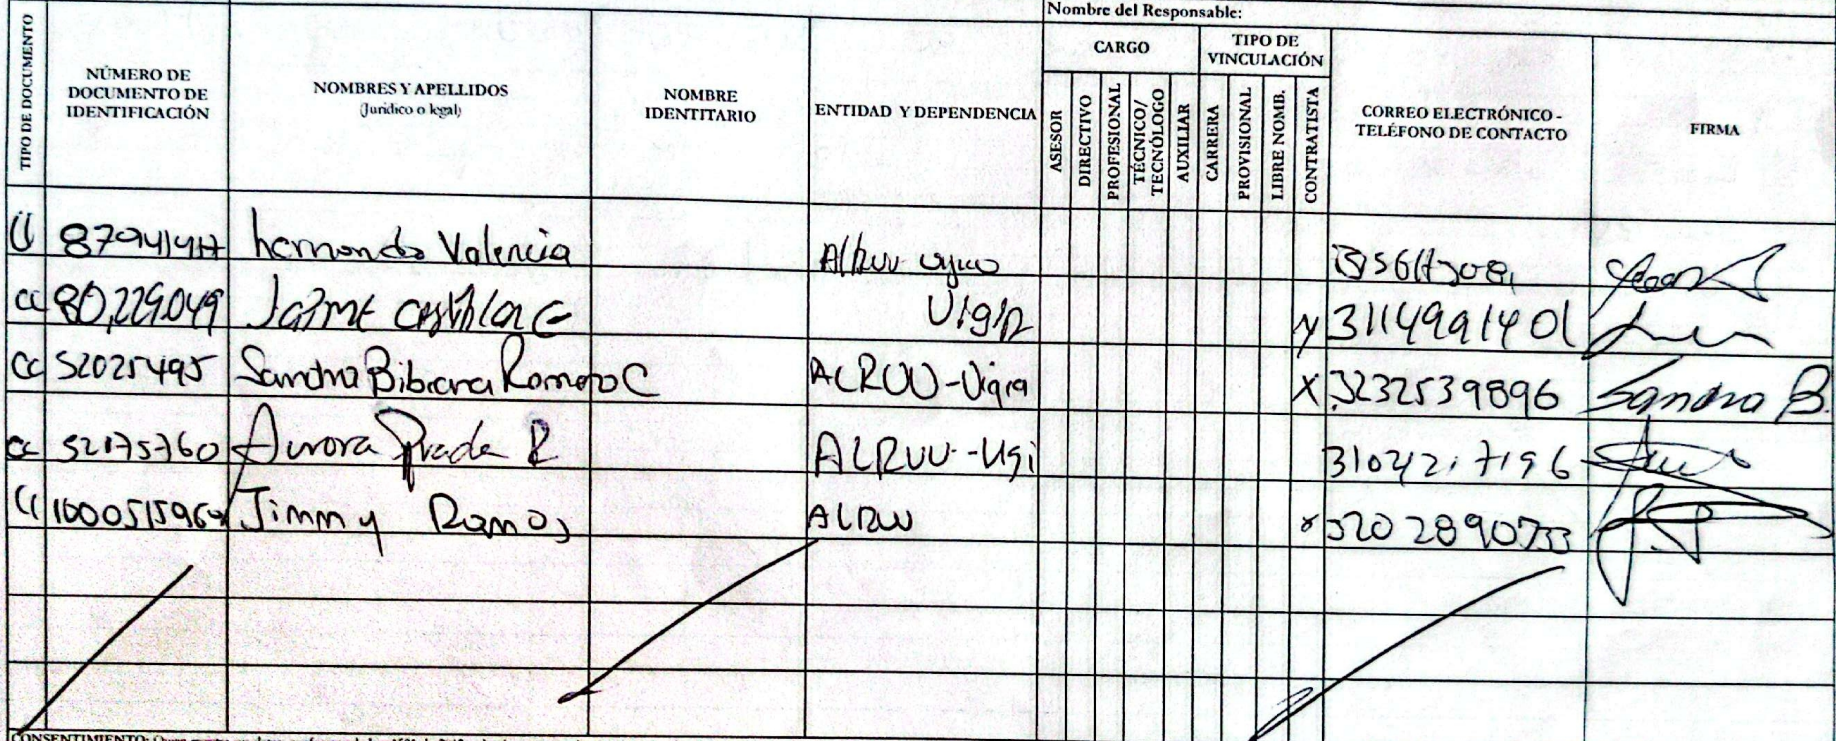 Nombre del Responsable:
TIPO DE DOCUMENTO
NÚMERO DE DOCUMENTO DE IDENTIFICACIÓN
NOMBRES Y APELLIDOS
(Jurídico o legal)
NOMBRE IDENTITARIO
ENTIDAD Y DEPENDENCIA
CARGO
ASESOR
DIRECTIVO
PROFESIONAL
TÉCNICO/ TECNÓLOGO
AUXILIAR
TIPO DE VINCULACIÓN
CARRERA
PROVISIONAL
LIBRE NOMB.
CONTRATISTA
CORREO ELECTRÓNICO - TELÉFONO DE CONTACTO
FIRMA
hernando Valencia
cc 80,229.049 Jaime C Vigia 3114991401
cc 52025495 Sandra Bibiana Romero C ALRUU-Vigia X 3232539896 Sandra B.
cc 52175760 Aurora Prada R ALRUU-Ugi 3104217196
Jimmy Ramos ALRUU x 3202890733
CONSENTIMIENTO: